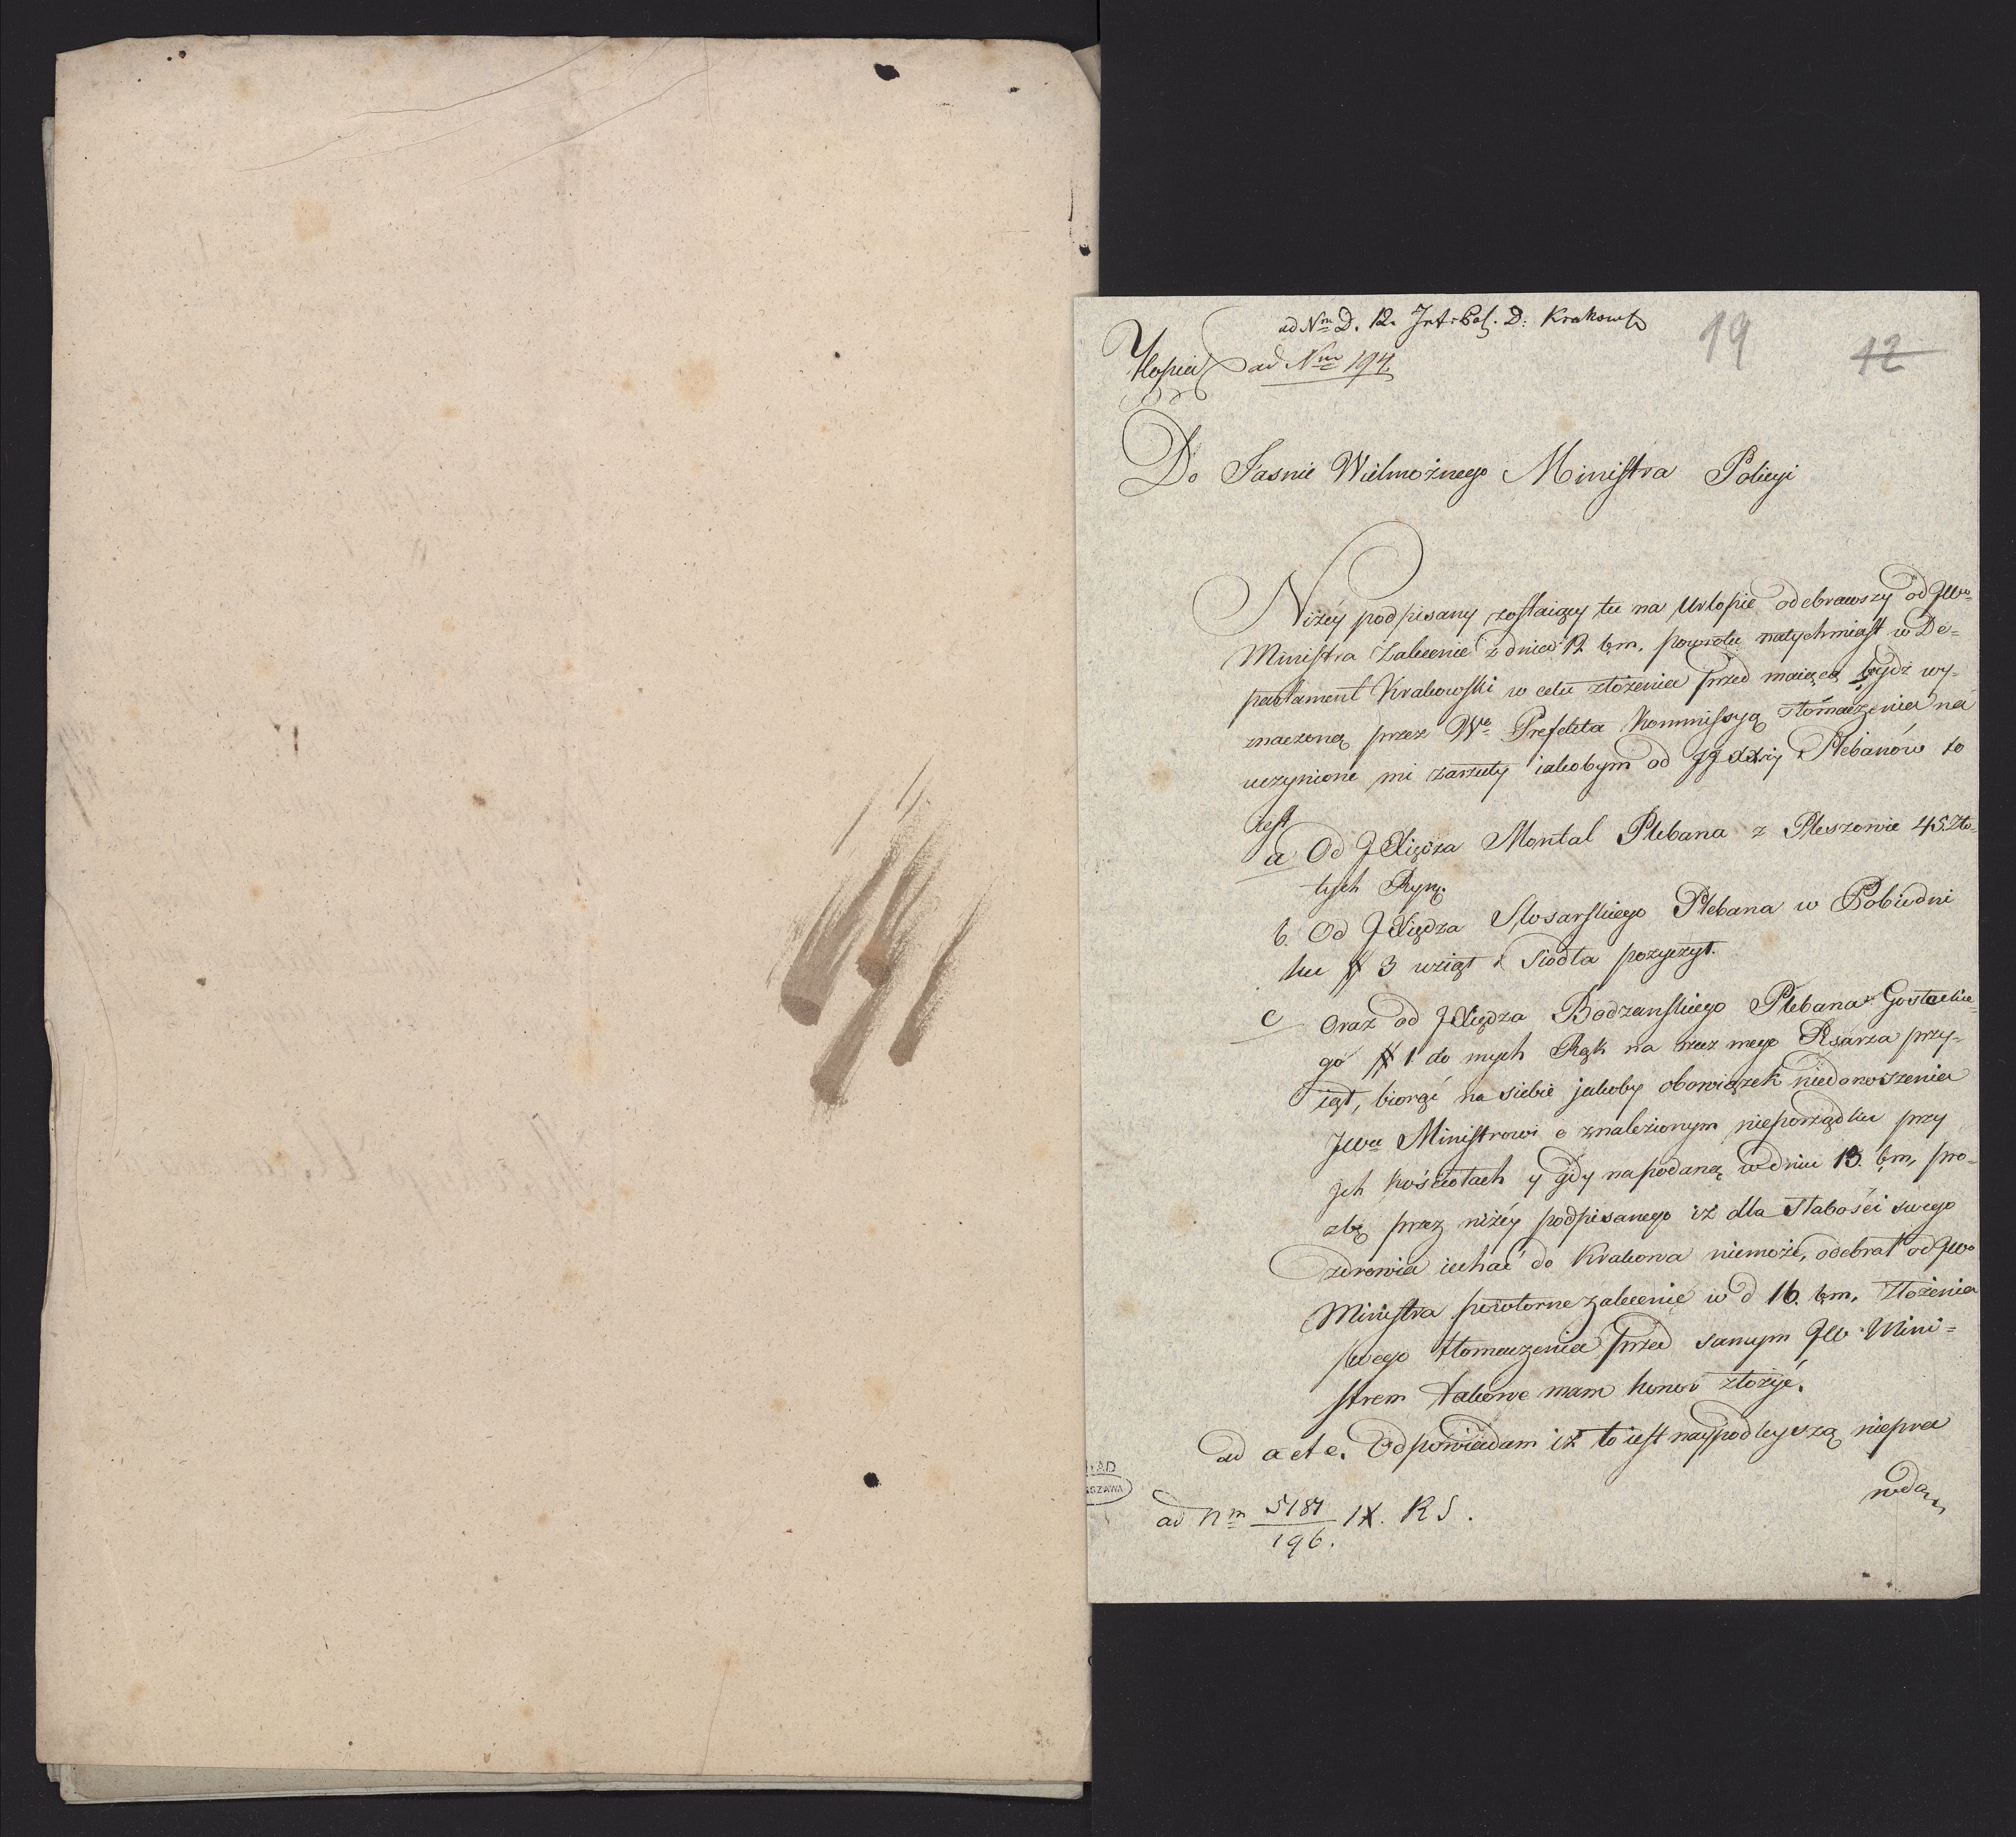 ad Nm D. 12. Int. Pol. D: Krakows
19
12
Kopia ad Nm 194
Do Jasnie Wielmożnego Ministra Policyi
Niżéy podpisany zostaiący tu na Urlopie odebrawszy od JWo
Ministra Zalecenie z dnia 12 b.m. powrotu natychmiast w De=
partament Krakowski w celu złożenia przed maiącą bydź wy-
znaczoną przez We Prefekta Kommissyą Tłómaczenia na
uczynione mi zarzuty iakobym od JJ XXży Plebanów to
iest
a Od JXiędza Montal Plebana z Pleszowie 45. Zło-
tych Ryń.
b. Od JXiędza Slosarskiego Plebana w Pobiedni
ku # 3 wziął i Siodła pozyczył.
c Oraz od JXiędza Bodzanskiego Plebana Gostackie=
go # 1 do mych Rąk na rzecz mego Pisarza przy-
iął, biorąc na siebie jakoby obowiązek niedonoszenia
JWu Ministrowi o znalezionym nieporządku przy
Jch kościołach y gdy napodaną w dniu 13. b.m. pro=
zbę przez niżéy podpisanego iż dla Słabości swego
zdrowia iechać do Krakowa niemoże, odebrał od JWo
Ministra powtorne zalecenie w d 16. b.m. Złożenia
swego tłomaczenia przed samym JW Mini=
strem takowe mam honor złożyć.
ad a et c. Odpowiadam iż to iest naypodleyszą niepra
wdą
ad nm 5181/196. IX. R S.